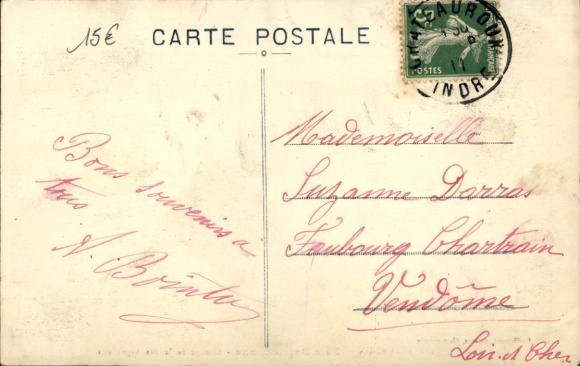 15€
CARTE POSTALE
5
POSTES
CHATEAUROUX
11
INDRE
Bons souvenirs a
tous
Mademoiselle
Suzanne Darras
Faubourg Chartrain
Vendôme
Loir et Cher